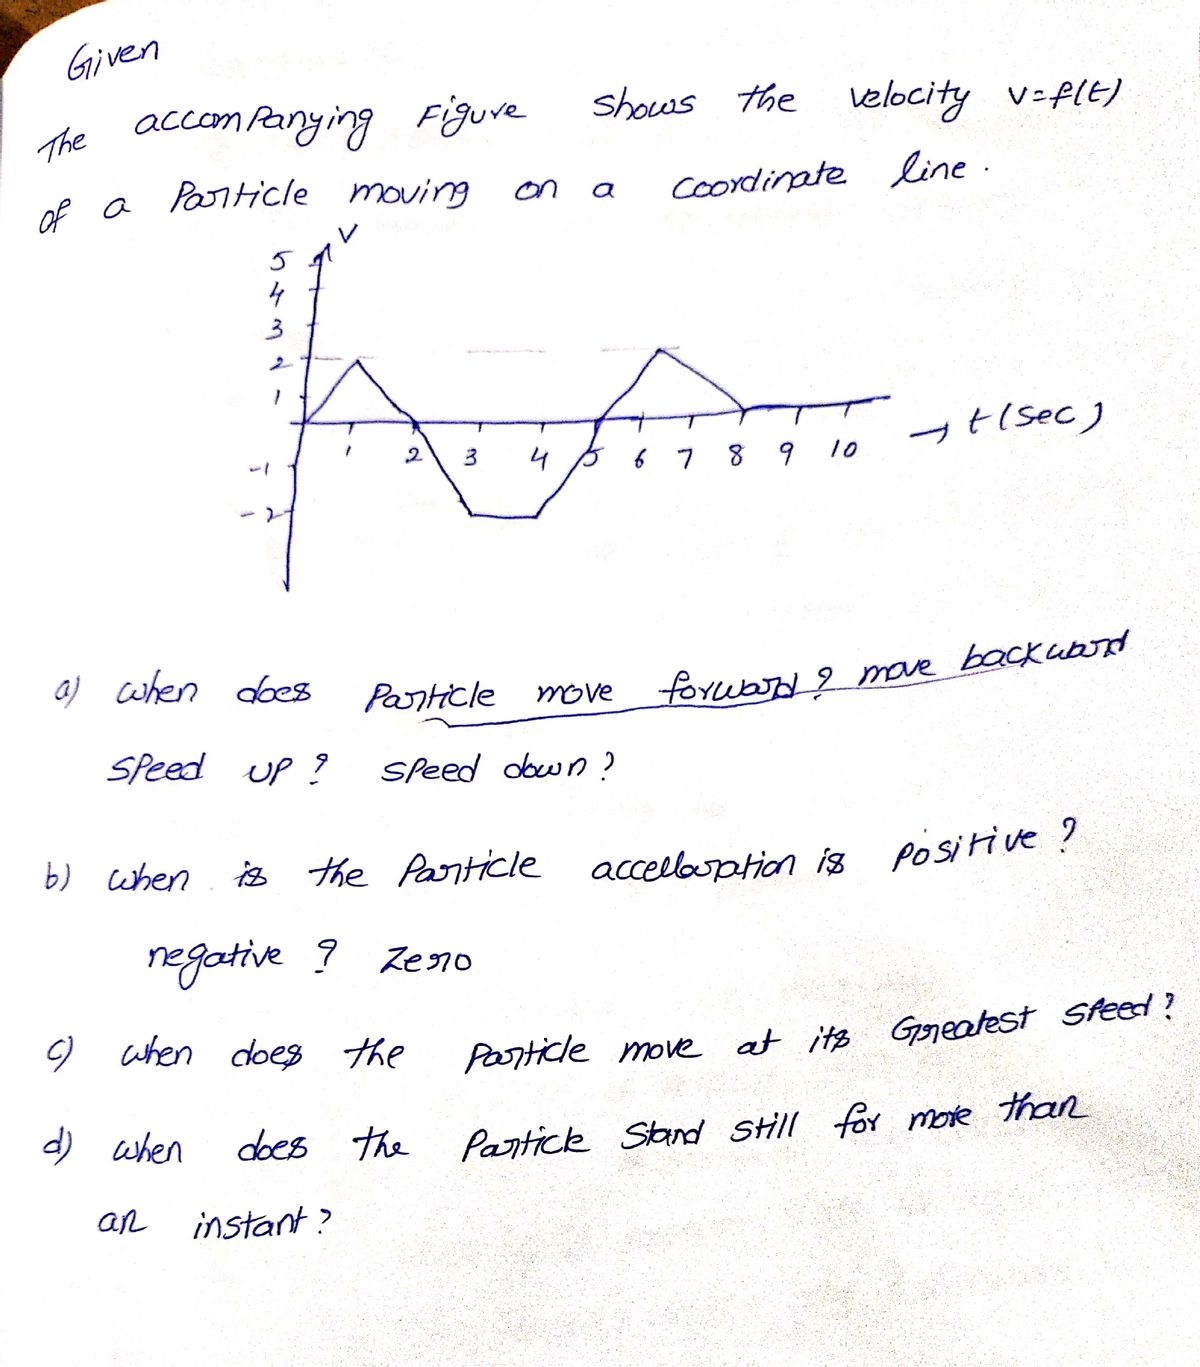 Given
The accompanying Figure shows the velocity v=f(t)
of a Particle moving on a coordinate line.
V
5
4
3
2
1
-1
-2
1 2 3 4 5 6 7 8 9 10 → t(sec)
a) when does Particle move forward? move backward
speed up? speed down?
b) when is the Particle accelleration is positive?
negative? Zero
c) when does the Particle move at its Greatest speed?
d) when does the Particle Stand still for more than
an instant?